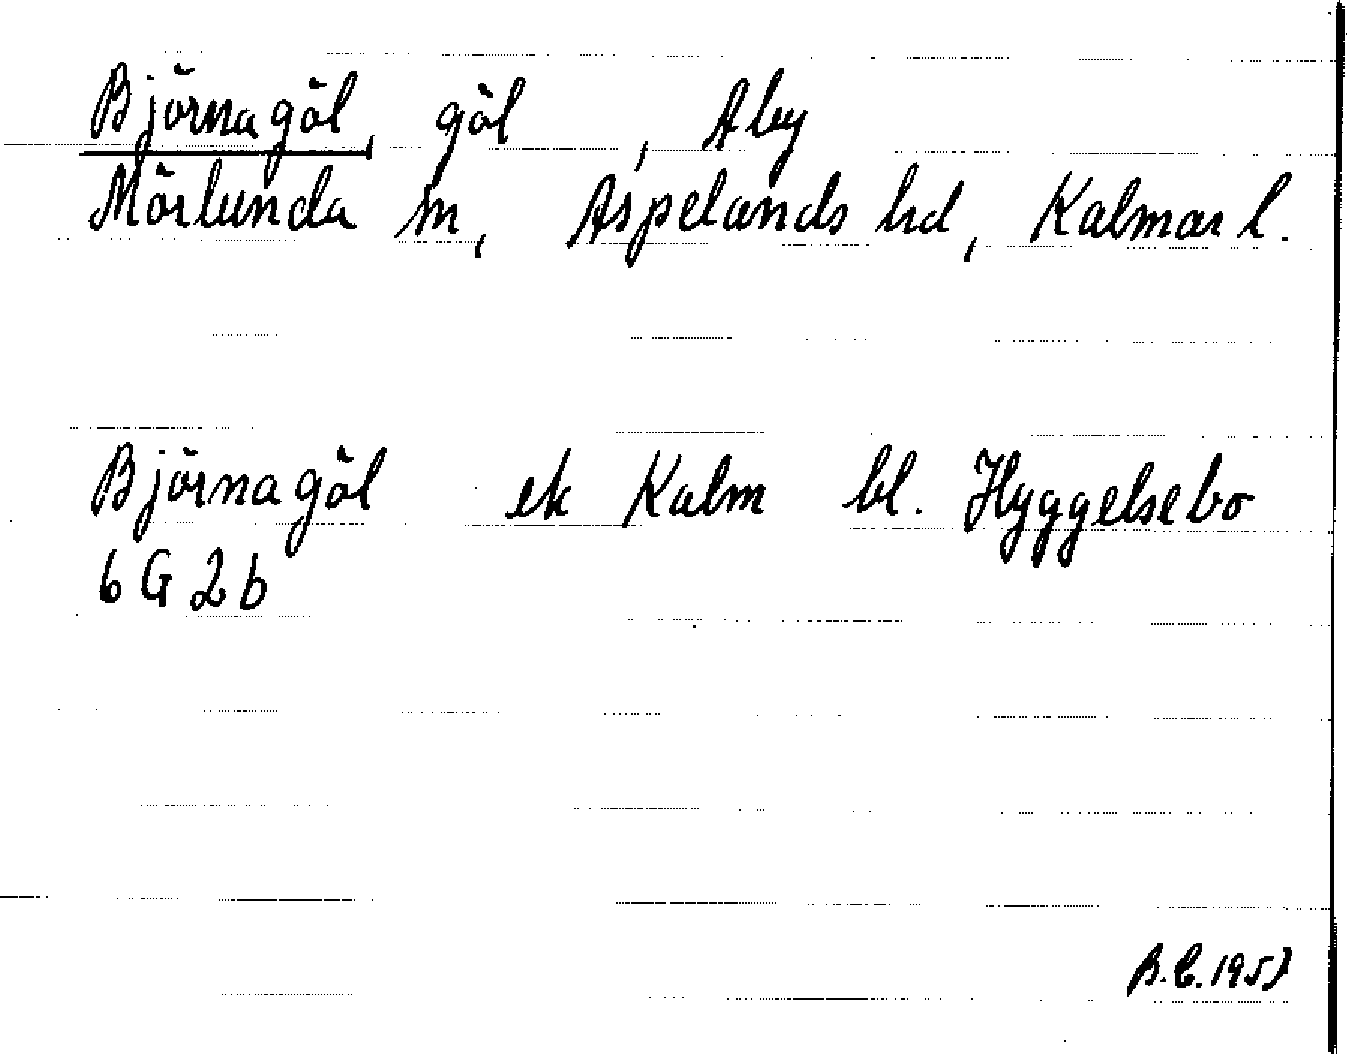 Björnagöl, göl , Åby
Mörlunda sn, Aspelands hd, Kalmar l.
Björnagöl ek Kalm bl. Hyggelsebo
6 G 2 b
B.E. 1957